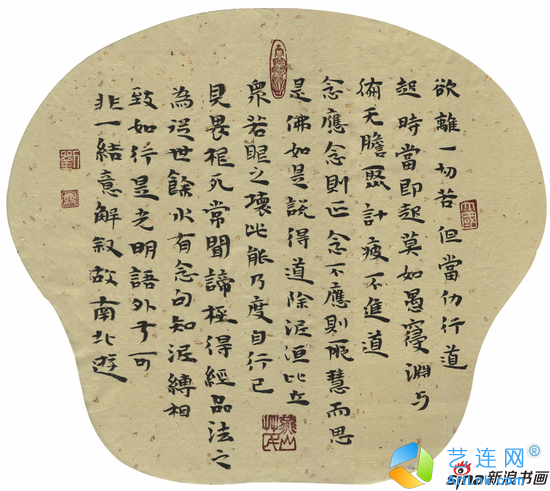 欲離一切苦但當仂行道
起時當即起莫如愚寑淵与
計疲不進道
念應念則正念不應則邪慧而思
是佛如是說得道除泥洹比丘
衆若眼之壞此能乃度自行已
見畏根死常聞諦極得經品法之
為從世餘水有念向知泥縛相
致如行是光明語外于可
非一結意解叙故南北遊
艺连网
sina 新浪书画